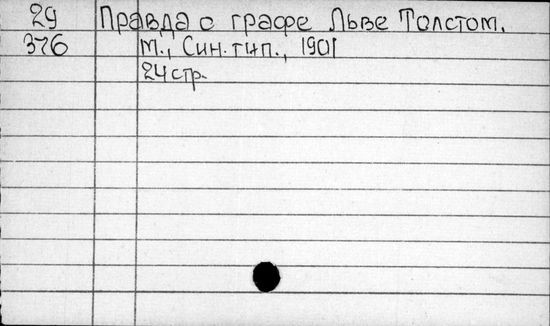 29 Правда о графе Льве Толстом.
376 М., Син. тип., 1901
24 стр.